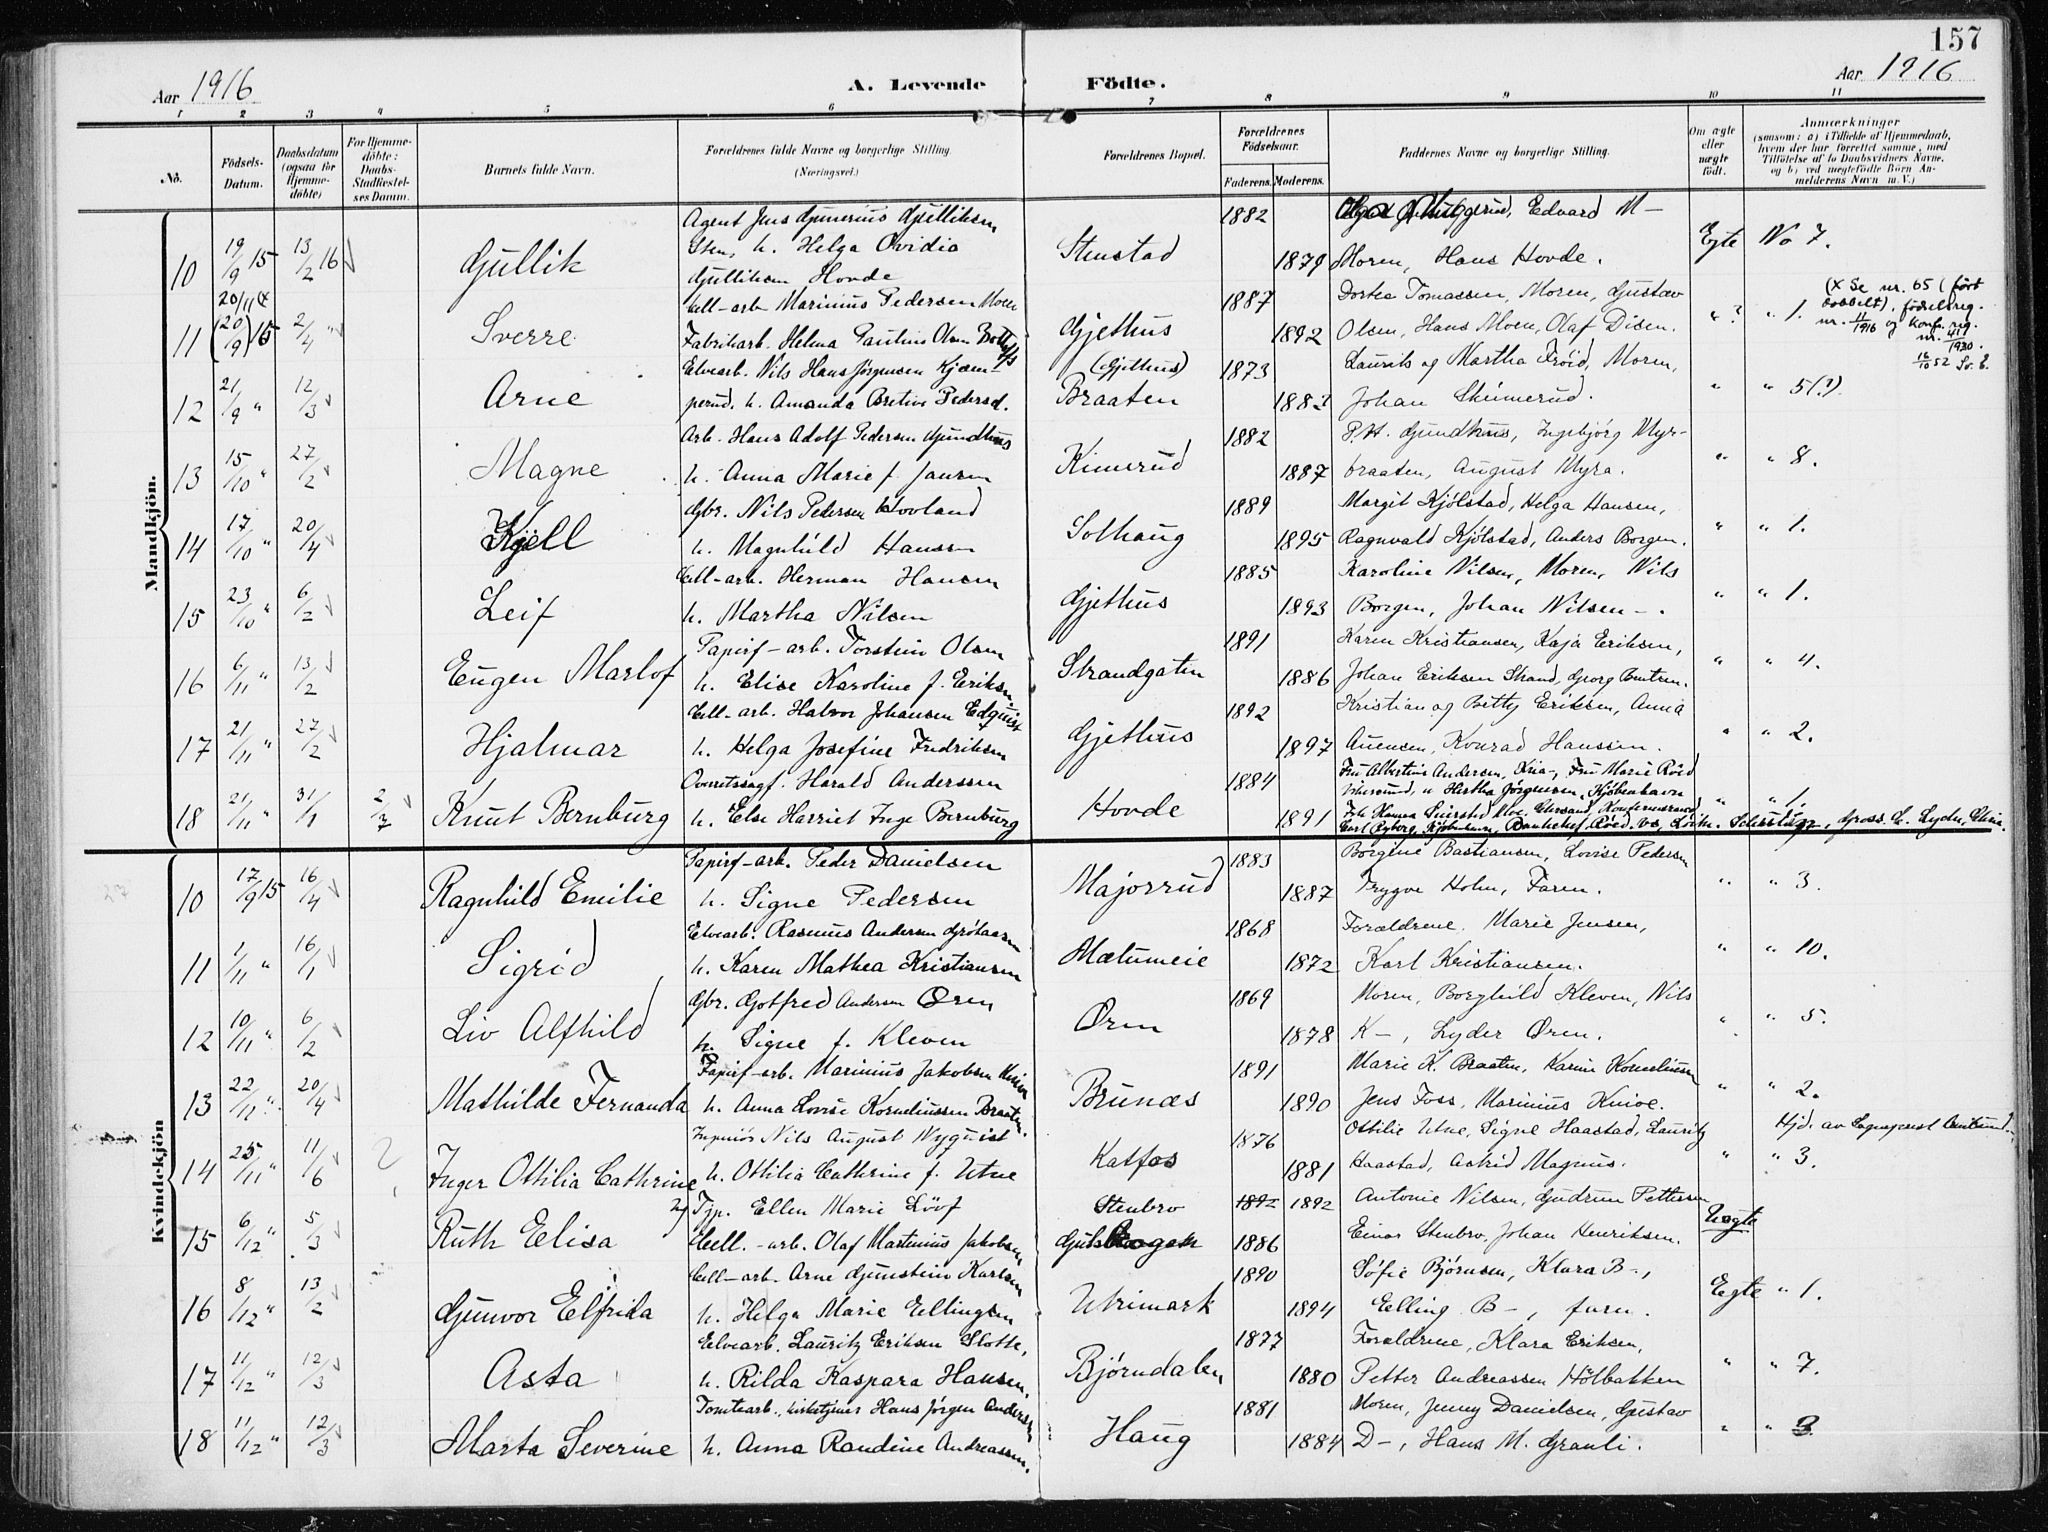 157
Aar 1916 A. Levende Födte. Aar 1916
1 2 3 4 5 6 7 8 9 10 11
No. Födsels-Datum. Daabsdatum (ogsaa for Hjemmedöbte) For Hjemmedöbte: Daabs-Stadfæstelses Datum. Barnets fulde Navn. Forældrenes fulde Navne og borgerlige Stilling (Næringsvei.) Forældrenes Bopæl. Forældrenes Födselsaar. Faderens. Moderens. Faddernes Navne og borgerlige Stilling. Om ægte eller uægte födt. Anmærkninger (saasom: a) i Tilfælde af Hjemmedaab, hvem der har forrettet samme, med Tilföielse af to Daabsvidners Navne, og b) ved uegtefödte Börn Anmelderens Navn m. V.)
Mandkjön.
Agent Jens Gunerius Gulliksen 1882 Edvard M-
10 19/9 15 13/2 16 Gullik Sten, h. Helga Ovidia Stenstad Egte No 7.
Gulliksen Hovde 1879 Moren, Hans Hovde.
20/11 x Cell-arb Marinius Pedersen Moen 1887 Dortea Tomassen, Moren, Gustav (x Se nr. 65 (ført dobbelt), fødselsreg. nr. 11/1916 og konf. reg. nr. 41/1930.
11 (20/9) 15 2/4 " Sverre Fabrikarb. Helma Pauline Olsen Gjethus 1892 Olsen, Hans Moen, Olaf Disen. " ? " 1. 16/10 52 Sv. E.
Elvearb. Nils Hans Jørgensen Kjæm- (Gjethus) 1873 Laurits og Martha Frøid, Moren,
12 21/9 " 12/3 Arne perud. h. Amanda Bretine Pedersd. Braaten Johan Skimerud. " " 5(?).
Arb. Hans Adolf Pedersen Gundhus 1882 P.H. Gundhus, Ingebjörg Myr-
13 15/10 " 27/2 Magne h. Anna Marie f. Jansen Kimerud 1887 braaten, August Myra. " " 8.
Gbr. Nils Pedersen Hovland 1889 Margit Kjölstad, Helga Hansen,
14 17/10 " 20/4 Kjell h. Magnhild Hansen Solhaug 1895 Ragnvald Kjölstad, Anders Borgen. " " 1.
Cell-arb. Herman Hansen 1885 Karoline Nilsen, Moren, Nils
15 23/10 " 6/2 Leif h. Martha Nilsen Gjethus 1893 Borgen, Johan Nilsen -. " " 1.
Papirf-arb. Torstein Olsen 1891 Karen Kristiansen, Kaja Eriksen,
16 6/11 " 13/2 Eugen Marlof h. Elise Karoline f. Eriksen Strandgaten 1886 Johan Eriksen Strand, Georg Bentsen. " " 4.
Cell-arb. Halvor Johansen Edquist 1892 Kristian og Betty Eriksen, Anna
17 21/11 " 27/2 Hjalmar h. Helga Josefine Fredriksen Gjethus 1897 Auensen, Konrad Hansen. " " 2.
Overretssagf. Harald Anderssen 1884 Fru Albertine Andersen, Kria-, Fru Marie Röed
Vikersund, u Hertha Jørgensen, Kjøbenhavn
18 21/11 " 31/1 2/7 Knut Bernburg h. Else Harriet Inge Bernburg Hovde 1891 " " 1.
Carl Ryberg, Kjøbenhavn,
Kvindekjön
Papirf-arb. Peder Danielsen 1883 Borgine Bastiansen, Lovise Pedersen
10 17/9 15 16/4 Ragnhild Emilie h. Signe Pedersen Majorrud 1887 Trygve Holm, Faren. " " 3.
Elvearb. Rasmus Andersen 1868 Forældrene, Marie Jensen,
11 1/11 " 16/1 Sigrid h. Karen Mathea Kristiansen Mætumeie 1872 Karl Kristiansen. " " 10.
Gbr. Gotfred Andersen Øren 1869 Moren, Borghild Kleven, Nils
12 10/11 " 6/2 Liv Alfhild h. Signe f. Kleven Øren 1878 K-, Lyder Øren. " " 5.
Papirf-arb. Marinius Jakobsen Knive 1891 Marie K. Braaten, Karine Korneliussen
13 22/11 " 20/4 Mathilde Fernanda h. Anna Lovise Korneliussen Braaten. Brunæs 1890 Jens Foss, Marinius Knive. " " 2.
Ingeniör Nils August Nyquist 1876 Ottilie Utne, Signe Haastad, Lauritz Hjd. av Sogneprest
14 25/11 " 11/6 Inger Ottilia Cathrine h. Ottilia Cathrine f. Utne Katfos 1881 Haastad, Astrid Magnus. " " 3.
Ug Tjp. Ellen Marie Lövf Stenbro 1892 1892 Antonie Nilsen, Gudrun Pettersen
15 6/12 " 5/3 Ruth Elisa Cell.-arb. Olaf Martinius Jakobsen 1886 Einar Stenbro, Johan Henriksen. Uegte
Cell-arb. Arne Gunstein Karlsen 1890 Sofie Björnsen, Klara B-,
16 8/12 " 13/2 Gunvor Elfrida h. Helga Marie Ellingsen Utrimark 1894 Elling B-, faren. Egte " 1.
Elvearb. Lauritz Eriksen Slotte, 1877 Forældrene, Klara Eriksen,
17 11/12 " 12/3 Asta h. Rilda Kaspara Hansen, Bjørndalen 1880 Petter Andreassen Hölbakken " " 7.
Tomtearb., kirketjener Hans Jørgen Andersen 1881 Moren, Jenny Danielsen, Gustav
18 11/12 " 12/3 Marta Severine h. Anna Randine Andreassen. Haug 1884 D-, Hans M. Grauli. " " 3.